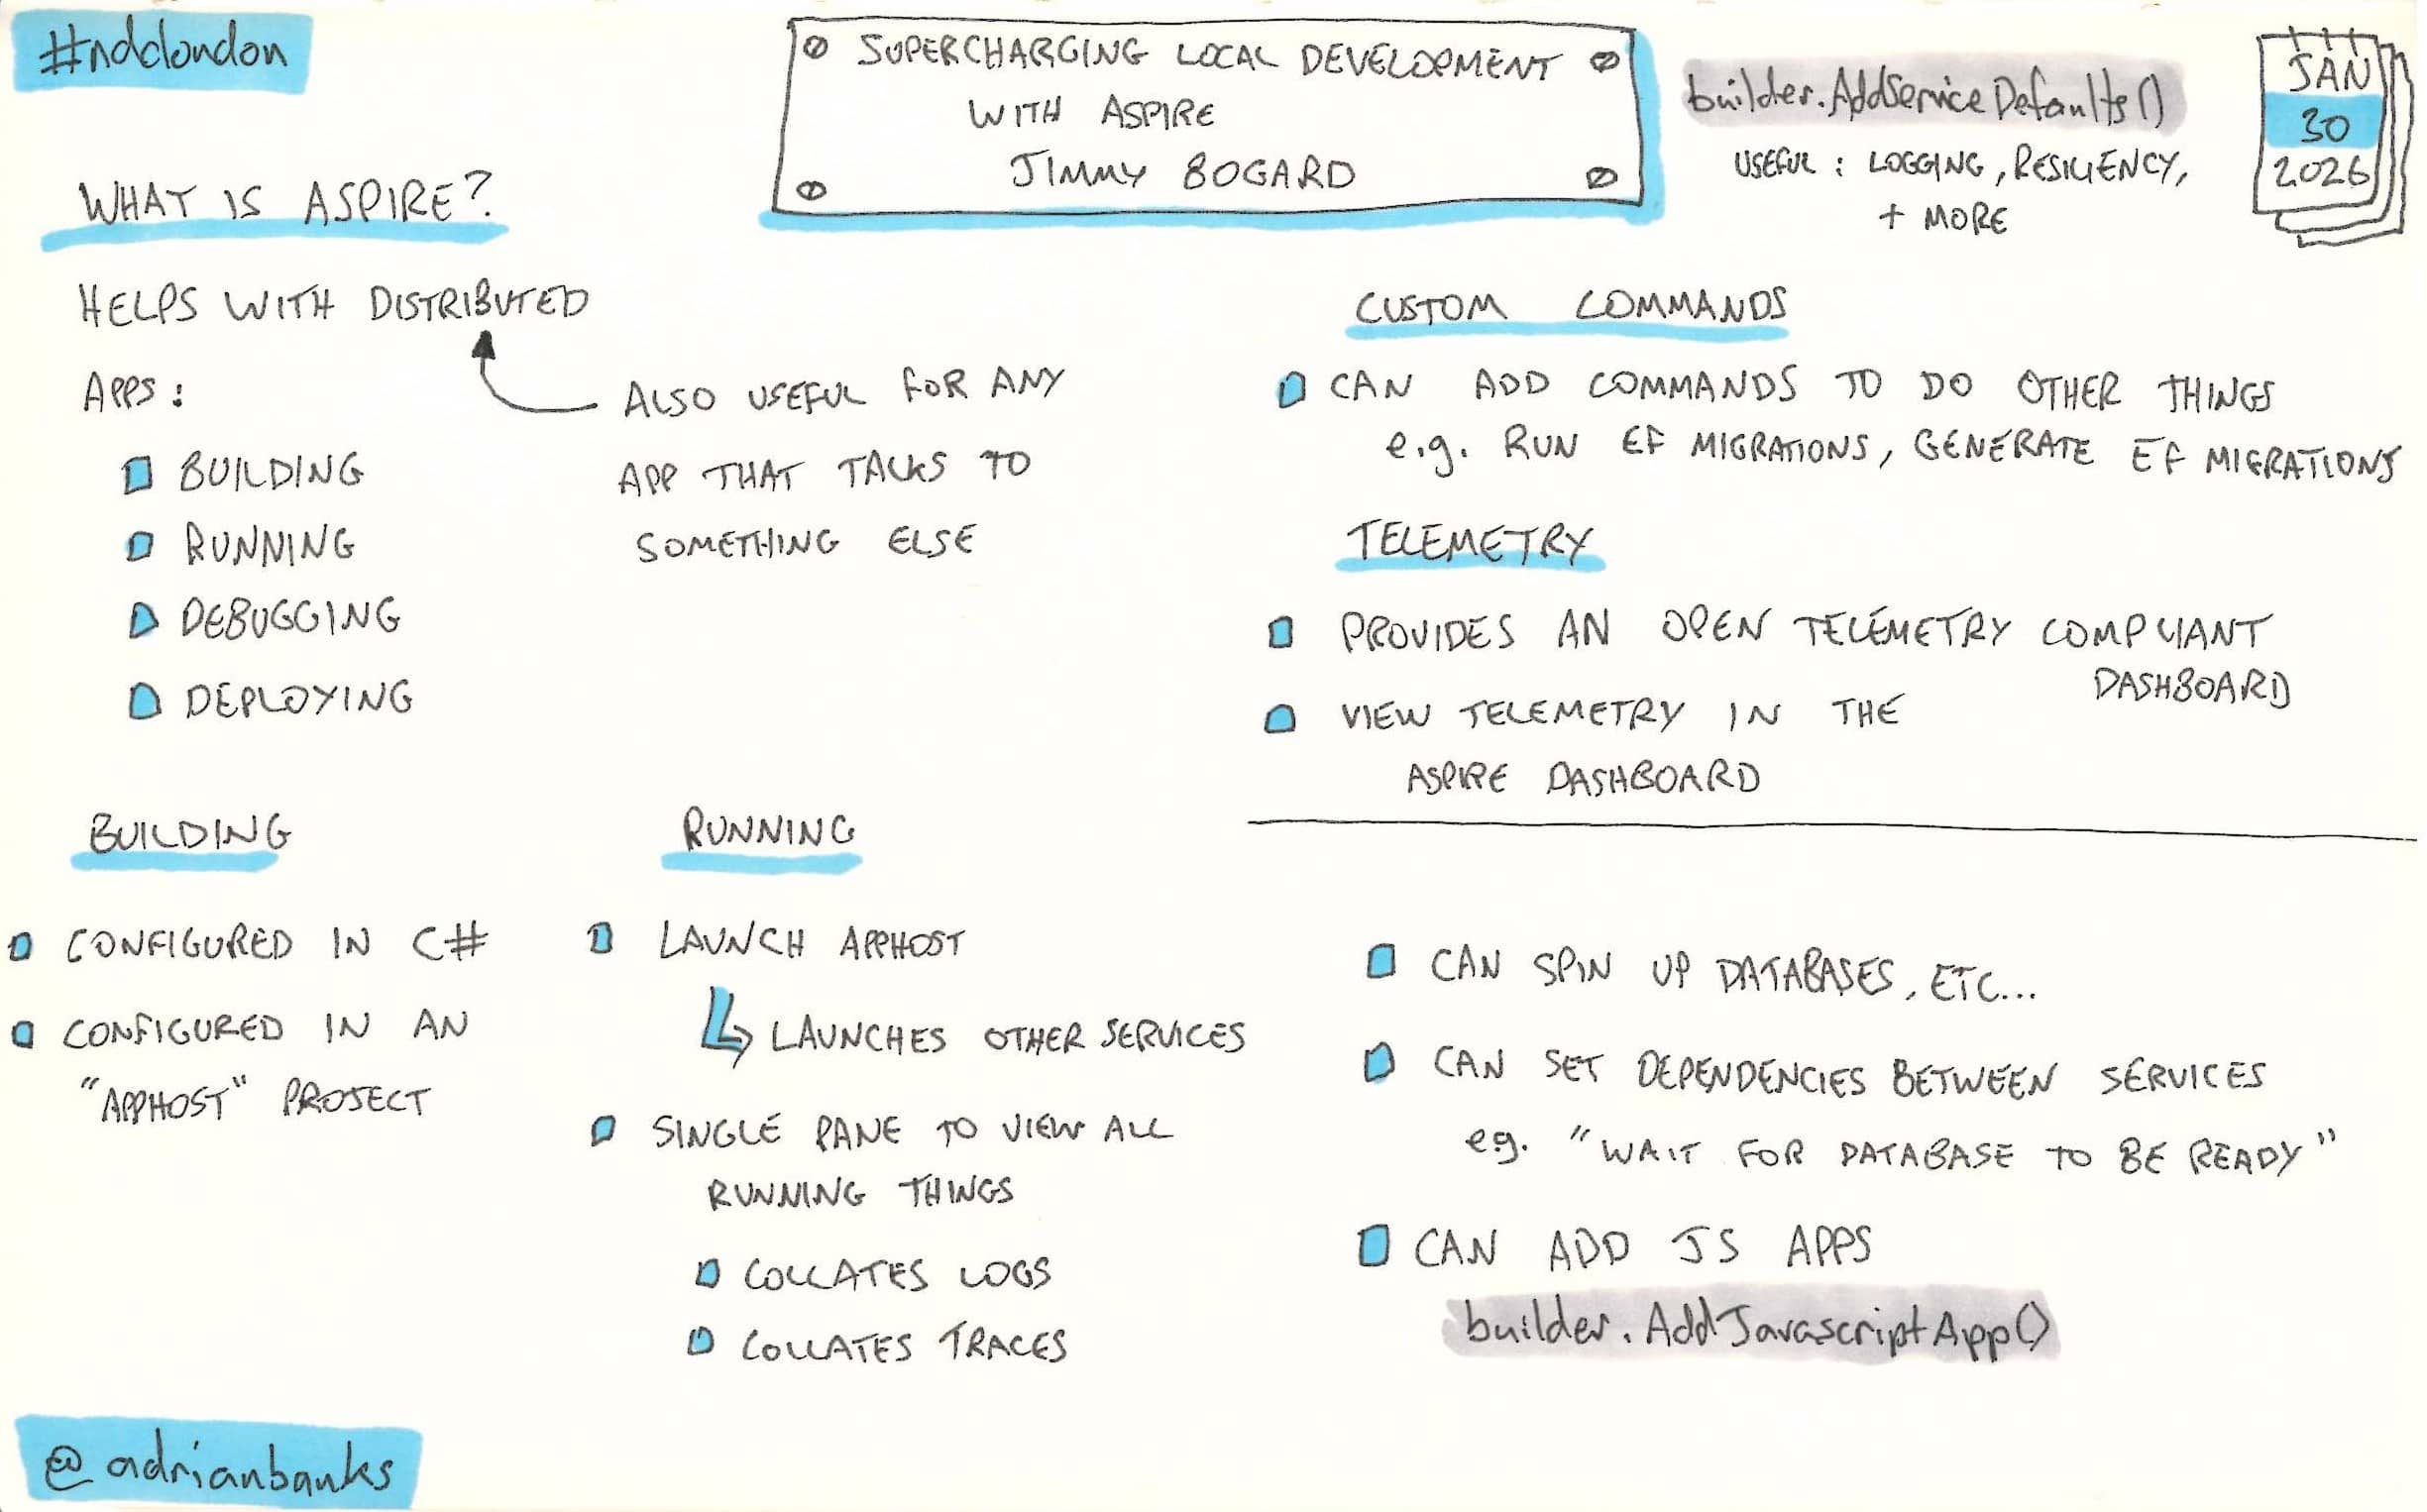 #ndclondon
SUPERCHARGING LOCAL DEVELOPMENT
WITH ASPIRE
JIMMY BOGARD
builder.AddServiceDefaults()
USEFUL : LOGGING, RESILIENCY,
+ MORE
JAN
30
2026
WHAT IS ASPIRE?
HELPS WITH DISTRIBUTED
APPS :
ALSO USEFUL FOR ANY
APP THAT TALKS TO
SOMETHING ELSE
BUILDING
RUNNING
DEBUGGING
DEPLOYING
BUILDING
CONFIGURED IN C#
CONFIGURED IN AN
"APPHOST" PROJECT
RUNNING
LAUNCH APPHOST
LAUNCHES OTHER SERVICES
SINGLE PANE TO VIEW ALL
RUNNING THINGS
COLLATES LOGS
COLLATES TRACES
CUSTOM COMMANDS
CAN ADD COMMANDS TO DO OTHER THINGS
e.g. RUN EF MIGRATIONS, GENERATE EF MIGRATIONS
TELEMETRY
PROVIDES AN OPEN TELEMETRY COMPLIANT
DASHBOARD
VIEW TELEMETRY IN THE
ASPIRE DASHBOARD
CAN SPIN UP DATABASES, ETC...
CAN SET DEPENDENCIES BETWEEN SERVICES
eg. "WAIT FOR DATABASE TO BE READY"
CAN ADD JS APPS
builder.AddJavascriptApp()
@adrianbanks